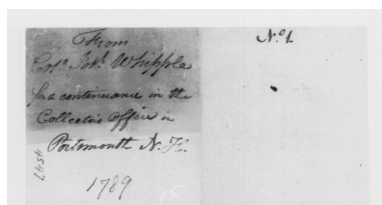 From
Colo. Jos. Whipple
for a continuance in the
Collector's Office in
Portsmouth N. H.
1789
No. 1